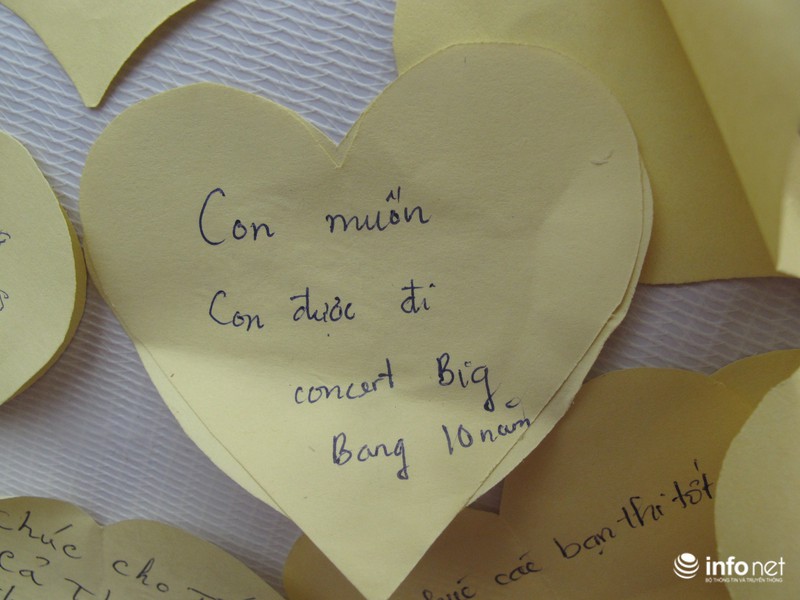 Con muốn
Con được đi
concert Big
Bang 10 năm
chúc cho
cả
các bạn thi tốt
infonet
BỘ THÔNG TIN VÀ TRUYỀN THÔNG